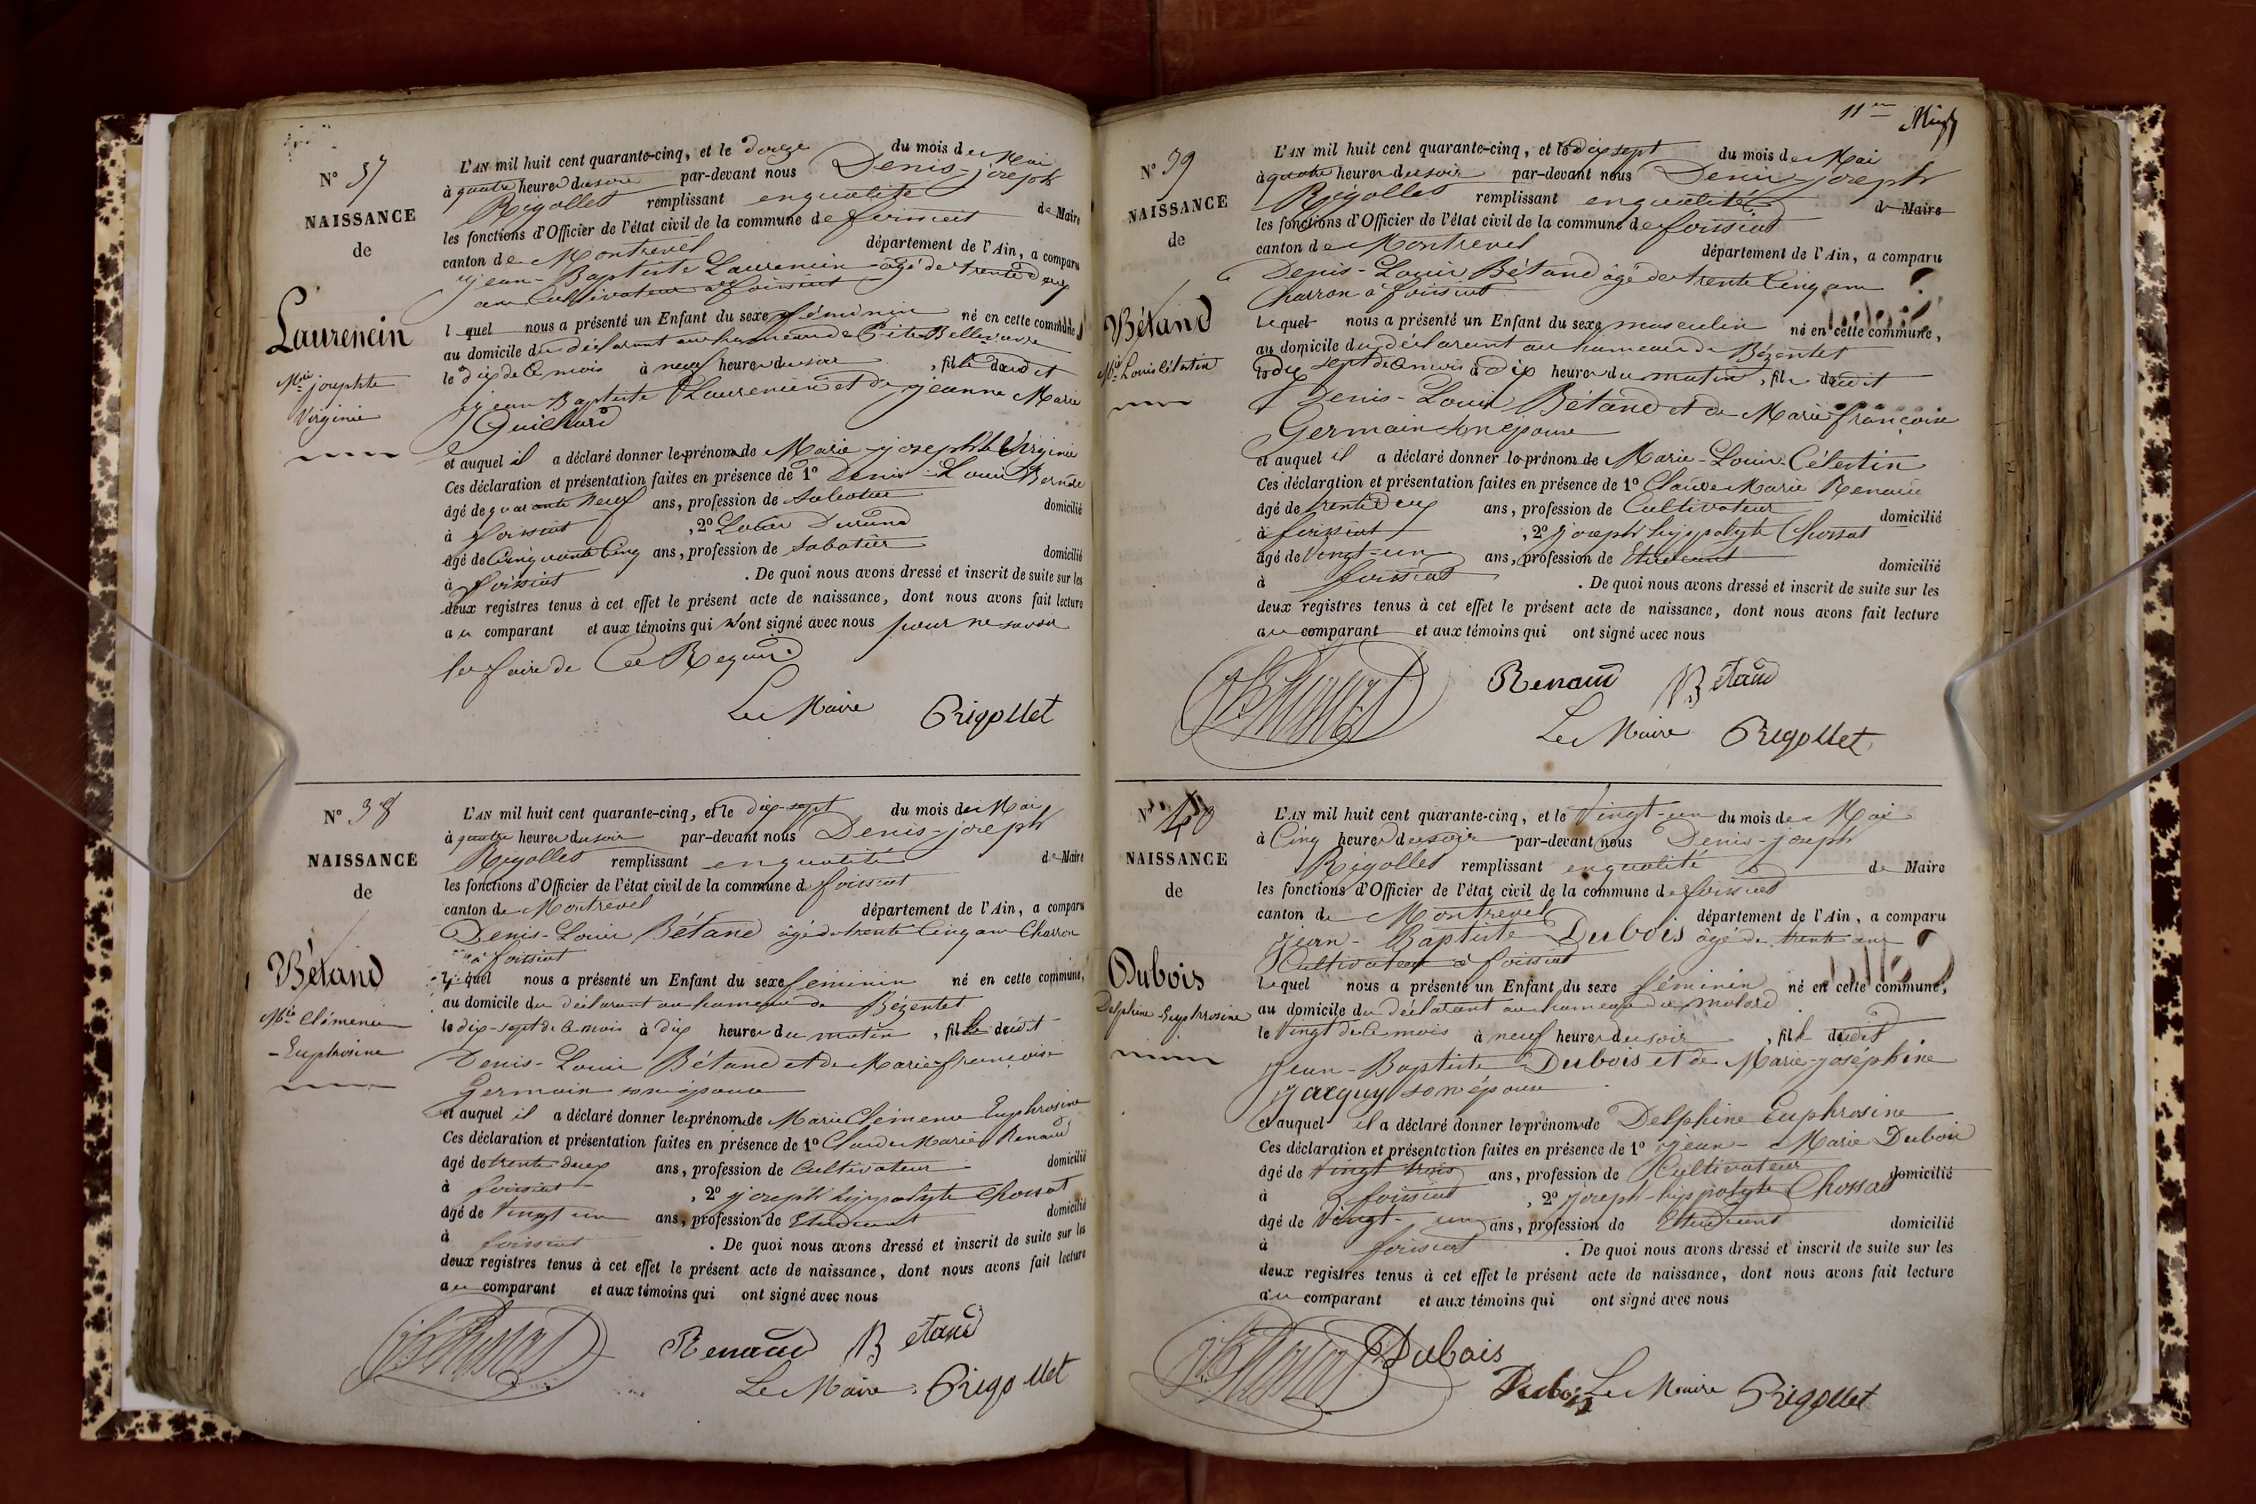 N° 37
NAISSANCE
de
Laurencin
Mie josephte
Virginie
L'AN mil huit cent quarante-cinq, et le douze du mois de Mai
à quatre heures du soir par-devant nous Denis-joseph
Rigollet remplissant en qualité de Maire
les fonctions d'Officier de l'état civil de la commune de foissiat
canton de Montrevel département de l'Ain, a comparu
jean-Baptiste Laurencin âgé de trente deux
ans Cultivateur à foissiat
lequel nous a présenté un Enfant du sexe féminin né en cette commune,
au domicile du déclarant au hameau de
le dix de Ce mois à neuf heures du soir, fille dudit
jean Baptiste Laurencin et de jeanne Marie
Guichard
et auquel il a déclaré donner les prénoms de Marie josephte Virginie
Ces déclaration et présentation faites en présence de 1° Denis-Louis
âgé de quarante neuf ans, profession de Sabotier domicilié
à foissiat, 2° Durand
âgé de Cinquante Cinq ans, profession de Sabotier domicilié
à foissiat. De quoi nous avons dressé et inscrit de suite sur les
deux registres tenus à cet effet le présent acte de naissance, dont nous avons fait lecture
au comparant et aux témoins qui n'ont signé avec nous pour ne savoir
le faire de Ce Requis
Le Maire Rigollet
N° 38
NAISSANCE
de
Bétand
Mie Clémence
-Euphrosine
L'AN mil huit cent quarante-cinq, et le dix-sept du mois de Mai
à quatre heures du soir par-devant nous Denis-joseph
Rigollet remplissant en qualité de Maire
les fonctions d'Officier de l'état civil de la commune de foissiat
canton de Montrevel département de l'Ain, a comparu
Denis-Louis Bétand âgé de trente Cinq ans Charron
à foissiat
lequel nous a présenté un Enfant du sexe féminin né en cette commune,
au domicile du déclarant au hameau de Bézentet
le dix-sept de Ce mois à dix heures du matin, fille dudit
Denis-Louis Bétand et de Marie françoise
Germain son épouse
et auquel il a déclaré donner les prénoms de Marie Clémence Euphrosine
Ces déclaration et présentation faites en présence de 1° Claude Marie Renaud
âgé de trente deux ans, profession de Cultivateur domicilié
à foissiat, 2° joseph hyppolyte Chossat
âgé de Vingt un ans, profession de Etudiant domicilié
à foissiat. De quoi nous avons dressé et inscrit de suite sur les
deux registres tenus à cet effet le présent acte de naissance, dont nous avons fait lecture
au comparant et aux témoins qui ont signé avec nous
Renaud Bétand
Le Maire Rigollet
11
N° 39
NAISSANCE
de
Bétand
Mie Louis Célestin
L'AN mil huit cent quarante-cinq, et le dix sept du mois de Mai
à quatre heures du soir par-devant nous Denis-joseph
Rigollet remplissant en qualité de Maire
les fonctions d'Officier de l'état civil de la commune de foissiat
canton de Montrevel département de l'Ain, a comparu
Denis-Louis Bétand âgé de trente Cinq ans
Charron à foissiat
lequel nous a présenté un Enfant du sexe masculin né en cette commune,
au domicile du déclarant au hameau de Bézentet
le dix sept de Ce mois à dix heures du matin, fils dudit
Denis-Louis Bétand et de Marie françoise
Germain son épouse
et auquel il a déclaré donner le prénom de Marie-Louis-Célestin
Ces déclaration et présentation faites en présence de 1° Claude Marie Renaud
âgé de trente deux ans, profession de Cultivateur domicilié
à foissiat, 2° joseph hyppolyte Chossat
âgé de Vingt-un ans, profession de Etudiant domicilié
à foissiat. De quoi nous avons dressé et inscrit de suite sur les
deux registres tenus à cet effet le présent acte de naissance, dont nous avons fait lecture
au comparant et aux témoins qui ont signé avec nous
Renaud Bétand
Le Maire Rigollet
N° 40
NAISSANCE
de
Dubois
Delphine Euphrosine
L'AN mil huit cent quarante-cinq, et le Vingt-un du mois de Mai
à Cinq heures du soir par-devant nous Denis-joseph
Rigollet remplissant en qualité de Maire
les fonctions d'Officier de l'état civil de la commune de foissiat
canton de Montrevel département de l'Ain, a comparu
jean-Baptiste Dubois âgé de trente ans
Cultivateur à foissiat
lequel nous a présenté un Enfant du sexe féminin né en cette commune,
au domicile du déclarant au hameau de molard
le Vingt de Ce mois à neuf heures du soir, fille dudit
Jean-Baptiste Dubois et de Marie-joséphine
jacquy son épouse
et auquel il a déclaré donner les prénoms de Delphine Euphrosine
Ces déclaration et présentation faites en présence de 1° jean-Marie Dubois
âgé de Vingt trois ans, profession de Cultivateur domicilié
à foissiat, 2° joseph-hippolyte Chossat
âgé de Vingt-un ans, profession de Etudiant domicilié
à foissiat. De quoi nous avons dressé et inscrit de suite sur les
deux registres tenus à cet effet le présent acte de naissance, dont nous avons fait lecture
au comparant et aux témoins qui ont signé avec nous
Dubois
Dubois Le Maire Rigollet